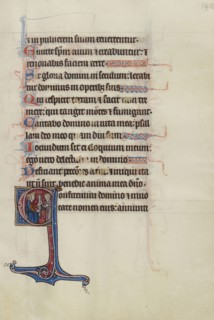 in pulverem suum revertentur.
Emitte spm tuum et creabuntur et
renovabis faciem terre
Sit gloria domini in seculum letabi
tur dominus in operibus suis
Qui respicit terram et facit eam tre
mere qui tangit montes et fumigant
Cantabo domino in vita mea psal
lam deo meo quam diu sum
Iocundum sit ei eloquium meum
ego vero delectabor in domino
Deficiant peccatores a terra et iniqui ita
ut non sint benedic anima mea dno
Confitemini domino et invo
cate nomen eius annunti